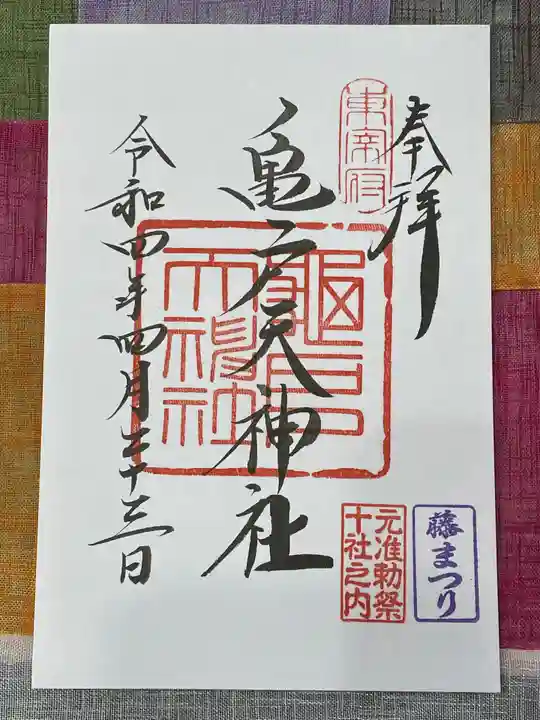 奉拝
東宰府
亀戸天神社
龜戸天神社
令和四年四月二十三日
藤まつり
元准勅祭
十社之内